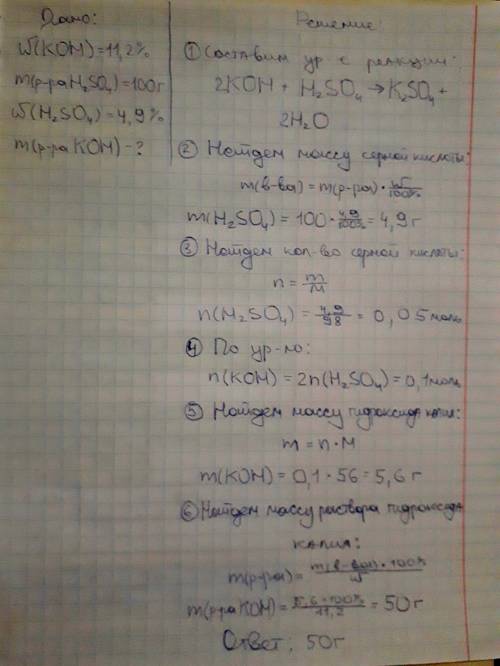 Дано:
ω(KOH)=11,2%
m(р-ра H₂SO₄)=100г
ω(H₂SO₄)=4,9%
m(р-ра KOH)-?
Решение:
① Составим ур-е реакции:
2KOH + H₂SO₄→K₂SO₄+
2H₂O
② Найдем массу серной кислоты:
m(в-ва)=m(р-ра)·ω/100%
m(H₂SO₄)=100·4,9/100%=4,9г
③ Найдем кол-во серной кислоты:
n=m/M
n(H₂SO₄)=4,9/98=0,05моль
④ По ур-ю:
n(KOH)=2n(H₂SO₄)=0,1моль
⑤ Найдем массу гидроксида калия:
m=n·M
m(KOH)=0,1·56=5,6г
⑥ Найдем массу раствора гидроксида
калия:
m(р-ра)=m(в-ва)·100%/ω
m(р-ра KOH)=5,6·100%/11,2=50г
Ответ: 50г